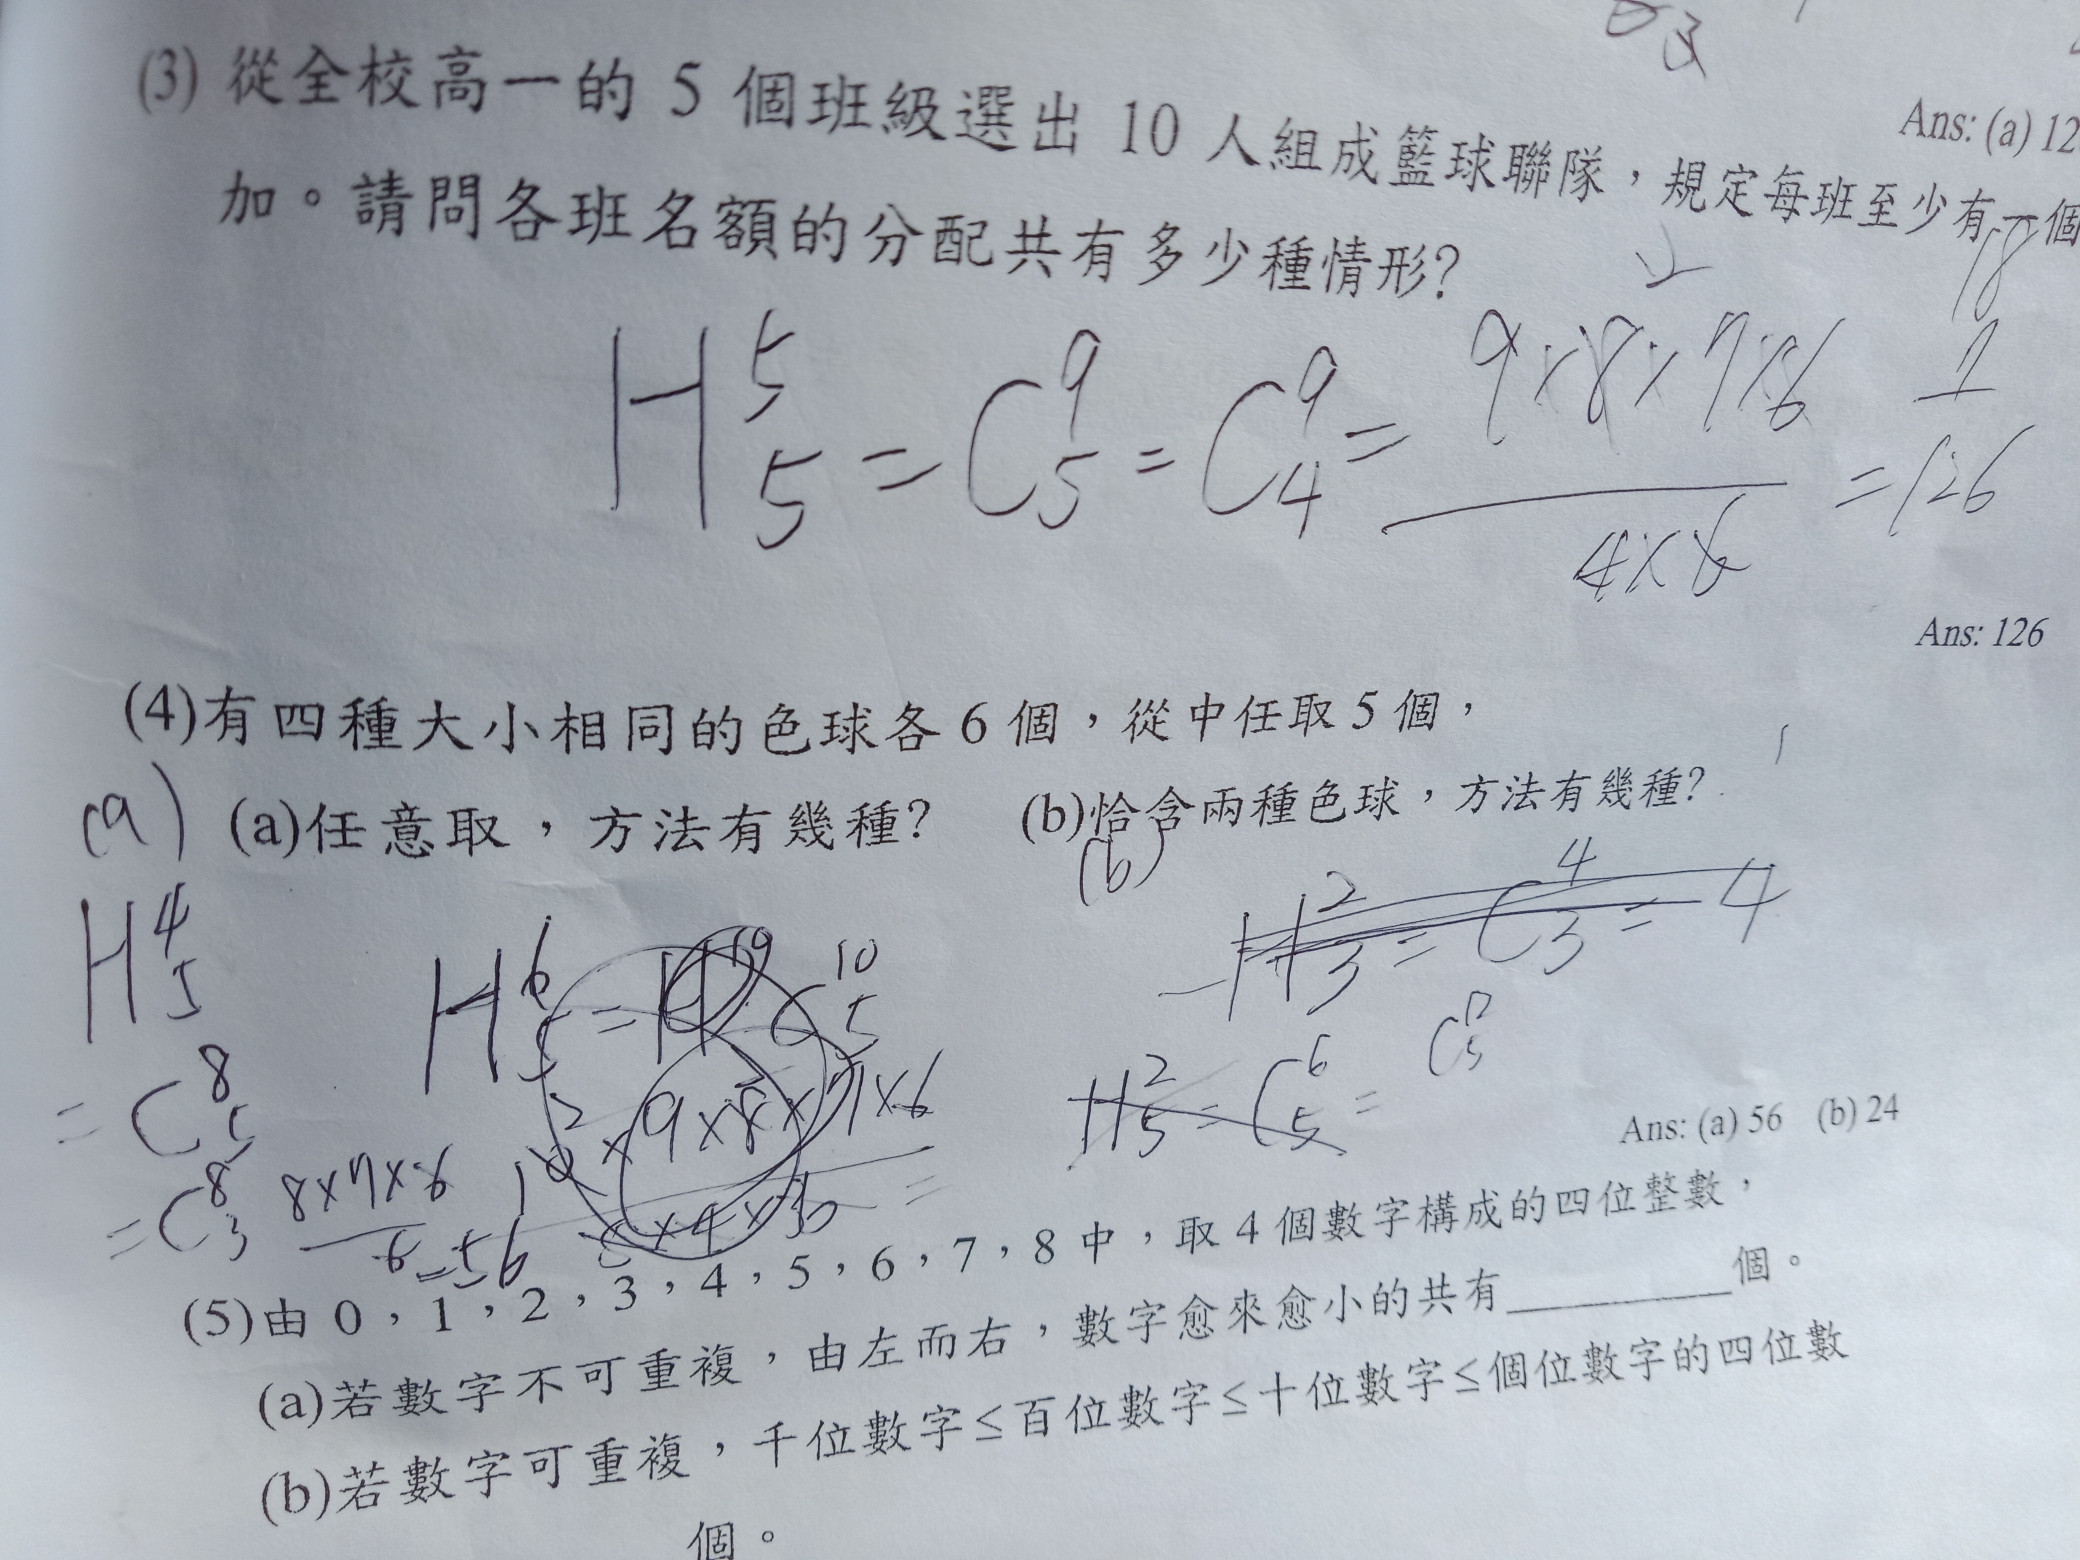 (3) 從全校高一的 5 個班級選出 10 人組成籃球聯隊，規定每班至少有一個
Ans: (a) 12
加。請問各班名額的分配共有多少種情形?
H⁵₅ = C⁹₅ = C⁹₄ = 9×8×7×6 / 4×6 = 126
18
7
Ans: 126
(4)有四種大小相同的色球各 6 個，從中任取 5 個，
(a) (a)任意取，方法有幾種? (b)恰含兩種色球，方法有幾種?
(b)
H⁴₅
H²₃ = C⁴₃ = 4
H⁶₅ = H C¹⁰₅
= C⁸₅
H²₅ = C⁶₅ =
10×9×8×7×6 / 5×4×3 =
= C⁸₃ 8×7×6 / 6 = 56
Ans: (a) 56 (b) 24
(5)由 0，1，2，3，4，5，6，7，8 中，取 4 個數字構成的四位整數，
(a)若數字不可重複，由左而右，數字愈來愈小的共有________個。
(b)若數字可重複，千位數字≤百位數字≤十位數字≤個位數字的四位數
個。